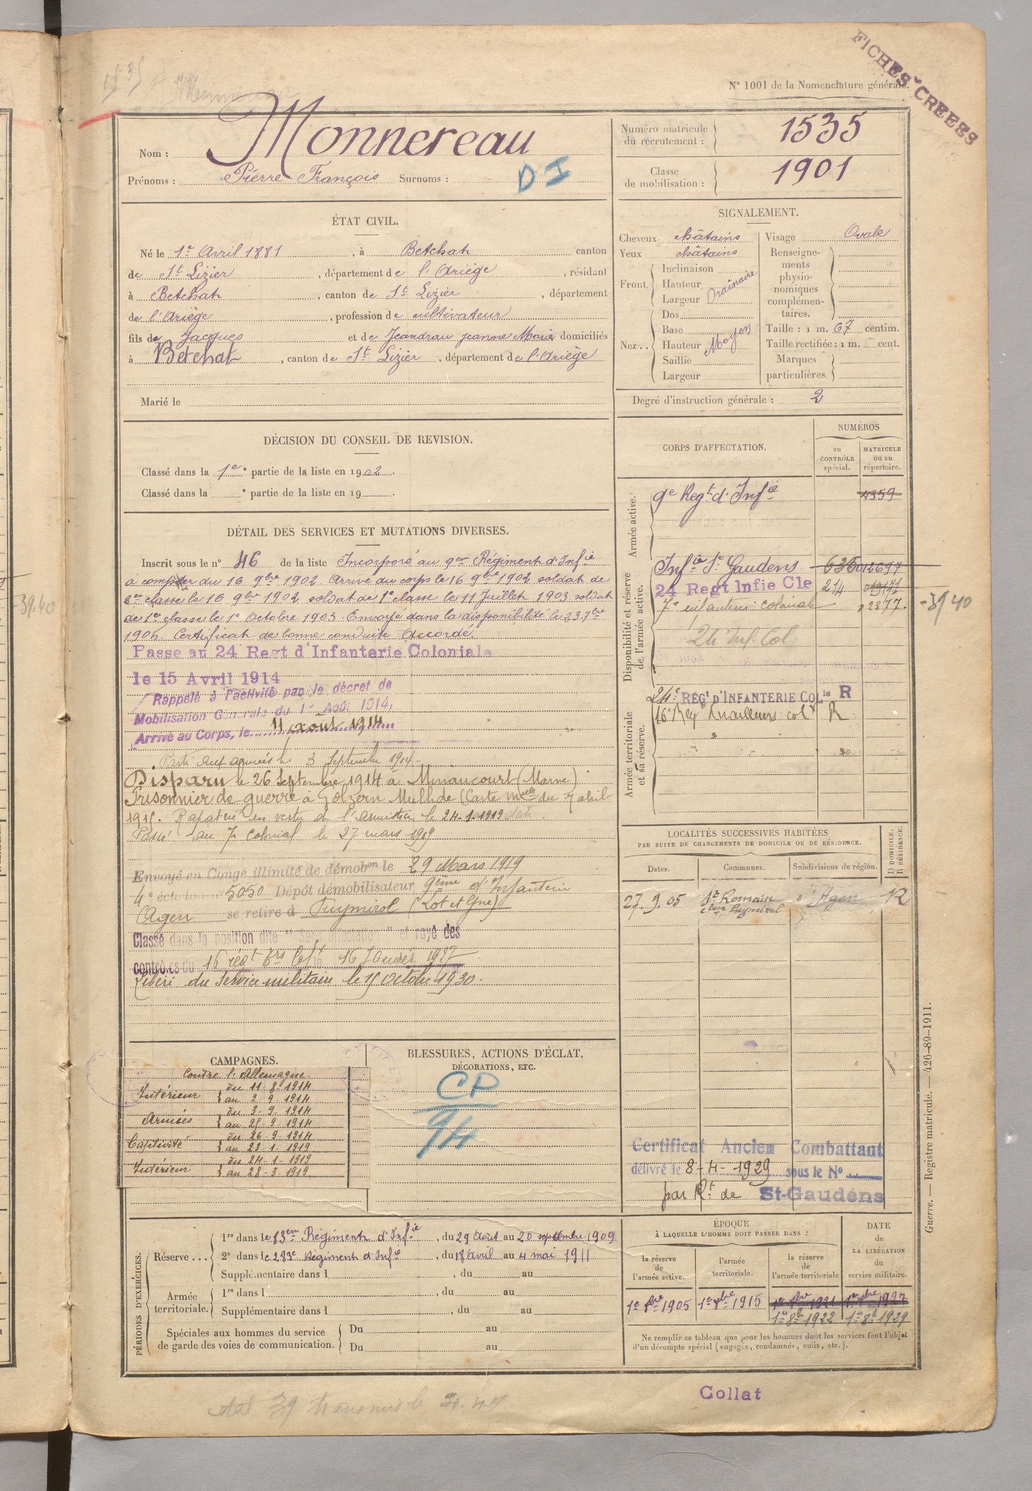 N° 1001 de la Nomenclature générale.
FICHES CRÉÉES
Nom : Monnereau
Prénoms : Pierre François Surnoms :
DI
Numéro matricule du recrutement : 1535
Classe de mobilisation : 1901
ÉTAT CIVIL.
Né le 1er Avril 1881, à Betchat canton
de St Lizier, département de l'Ariège, résidant
à Betchat, canton de St Lizier, département
de l'Ariège, profession de cultivateur
fils de Jacques et de Jeandrau jeanne Marie domiciliés
à Betchat, canton de St Lizier, département de l'Ariège
Marié le
SIGNALEMENT.
Cheveux châtains
Yeux châtains
Front. Inclinaison Hauteur Largeur Ordinaire
Nez. Dos Base Hauteur Saillie Largeur Moyen
Visage Ovale
Renseignements physionomiques complémentaires.
Taille : 1 m. 67 centim.
Taille rectifiée : 1 m. cent.
Marques particulières.
Degré d'instruction générale : 2
DÉCISION DU CONSEIL DE REVISION.
Classé dans la 1e partie de la liste en 1902.
Classé dans la partie de la liste en 19
DÉTAIL DES SERVICES ET MUTATIONS DIVERSES.
Inscrit sous le n° 46 de la liste Incorporé au 9me Régiment d'Infie
à compter du 16 9bre 1902. Arrivé au corps le 16 9bre 1902 soldat de
2e classe le 16 9bre 1902. soldat de 1e classe le 11 Juillet 1903 soldat
de 1re classe le 1er Octobre 1903. Envoyé dans la disponibilité le 23 7bre
1905. Certificat de bonne conduite Accordé.
Passe au 24 Regt d'Infanterie Coloniale
le 15 Avril 1914
Rappelé à l'activité par le décret de
Mobilisation Générale du 1er Août 1914,
Arrivé au Corps, le 11 août 1914
Parti aux armées le 3 Septembre 1914.
Disparu le 26 Septembre 1914 à Minaucourt (Marne)
Prisonnier de guerre à Golzern Mulhde (Carte melle du 7 abil
1915. Rapatrié en vertu de l'armistice le 24-1-1919
Passé au 7e Colonial le 27 mars 1919
Envoyé en Congé illimité de démobon le 29 Mars 1919
4e échelon n° 5050 Dépôt démobilisateur 9ème d'Infanterie
Agen se retire à Puymirol (Lot et Gne)
Classé dans la position dite et rayé des
contrôles du 16 régt le 16 Janvier 1927
Libéré du Service militaire le 15 Octobre 1930.
CORPS D'AFFECTATION.
NUMÉROS
au contrôle spécial.
MATRICULE ou au répertoire.
Armée active.
9e Regt d'Infie 4359
Disponibilité et réserve de l'armée active.
Infie St Gaudens 636 012697
24 Regt Infie Cle 214
7e infanterie coloniale 12877.
-39 40
24 Inf. Col
Armée territoriale et sa réserve.
24e REGt D'INFANTERIE COLle R
16e Reg Tirailleurs colx R
LOCALITÉS SUCCESSIVES HABITÉES
PAR SUITE DE CHANGEMENTS DE DOMICILE OU DE RÉSIDENCE.
Dates. Communes. Subdivisions de région. D DOMICILE. R RÉSIDENCE.
27.9.05 St Romain con Puymirol Agen R
CAMPAGNES.
Contre l'Allemagne.
Intérieur du 11-8-1914 au 2-9-1914
Armées du 3-9-1914 au 25-9-1914
Captivité du 26-9-1914 au 23-1-1919
Intérieur du 24-1-1919 au 28-3-1919
BLESSURES, ACTIONS D'ÉCLAT,
DÉCORATIONS, ETC.
CP
94
Certificat Ancien Combattant
délivré le 8-4-1929 sous le N°
par Rt de St-Gaudens
PÉRIODES D'EXERCICES.
Réserve 1re dans le 83eme Régiment d'Infie, du 29 Avril au 20 septembre 1909
2e dans le 283e Régiment d'Infie, du 18 Avril au 4 mai 1911
Supplémentaire dans l, du au
Armée territoriale. 1re dans l, du au
Supplémentaire dans l, du au
Spéciales aux hommes du service de garde des voies de communication. Du au
Du au
ÉPOQUE
À LAQUELLE L'HOMME DOIT PASSER DANS :
la réserve de l'armée active. l'armée territoriale. la réserve de l'armée territoriale
DATE de LA LIBÉRATION du service militaire.
1e 9bre 1905 1er 8bre 1915 1er 8bre 1921 1er 8bre 1927
1er 8e 1922 1er 8e 1929
Ne remplir ce tableau que pour les hommes dont les services font l'objet
d'un décompte spécial (engagés, condamnés, omis, etc.).
Guerre. — Registre matricule. — 426-89-1911.
Collat